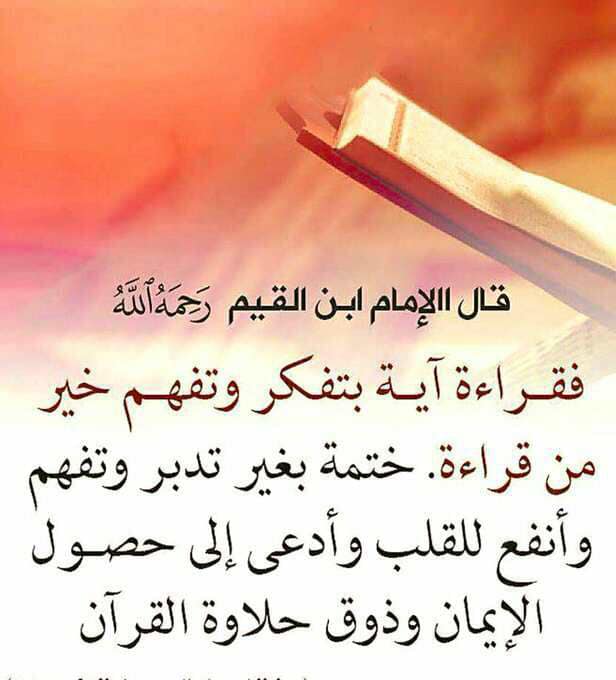 قال االإمام ابن القيم رَحِمَهُ ٱللَّهُ
فقـراءة آيـة بتفكر وتفهـم خير
من قراءة. ختمة بغير تدبر وتفهم
وأنفع للقلب وأدعى إلى حصـول
الإيمان وذوق حلاوة القرآن